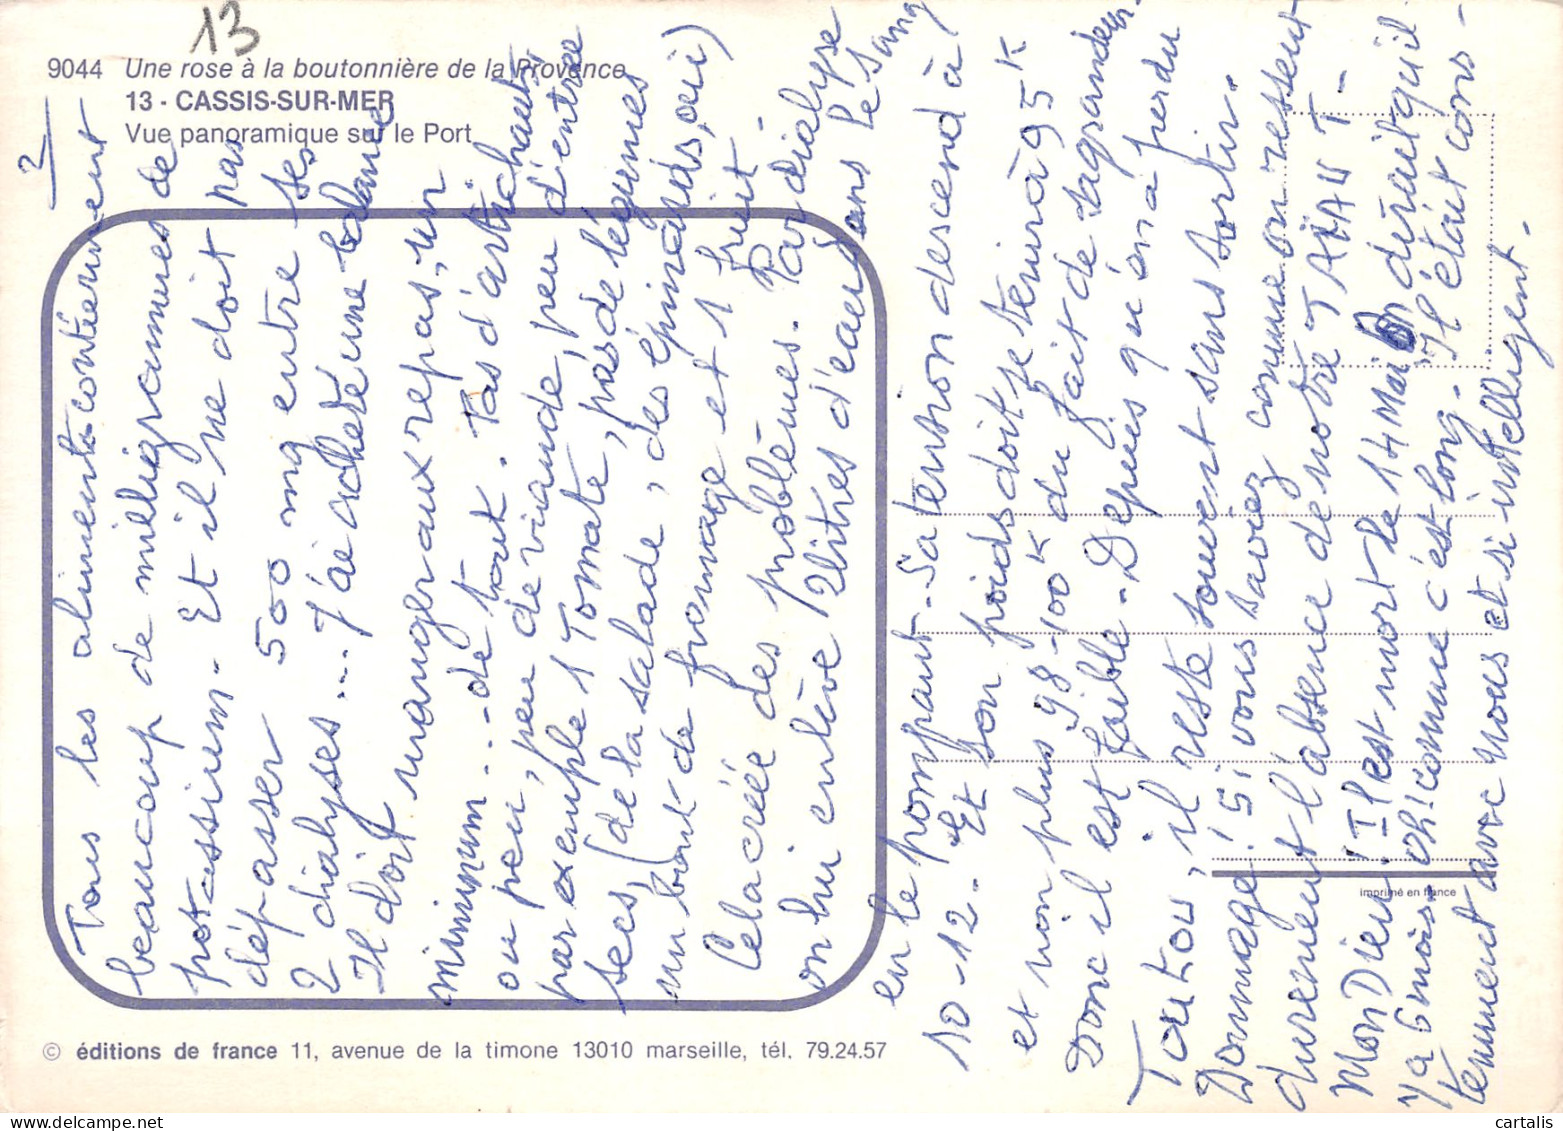 13
9044 Une rose à la boutonnière de la Provence
13 - CASSIS-SUR-MER
Vue panoramique sur le Port
2
Tous les aliments contiennent
beaucoup de milligrammes de
potassium. Et il ne doit pas
dépasser 500 mg entre ses
2 dialyses... J'ai acheté une balance
Il doit manger aux repas, un
minimum... de tout. Pas d'artichauts
ou peu, peu de viande, peu d'entrée
par exemple 1 Tomate, pas de légumes
secs, (de la salade, des épinards, oui)
un bout de fromage et 1 fruit.
Cela créée des problèmes. Par dialyse
on lui enlève 2 litres d'eau dans le sang
en le pompant. Sa tension descend à
10-12. Et son poids doit se tenir à 95 K
et non plus 98-100K du fait de sa grandeur.
Donc il est faible. Depuis qu'on a perdu
Toutou, il reste souvent sans sortir.
Dommage! Si vous saviez comme on ressent
durement l'absence de notre TAÏAUT -
Mon Dieu! Il est mort le 14 Mai on dirait qu'il
y a 6 mois. oh! comme c'est long. Il était cons-
temment avec nous et si intelligent.
imprimé en france
© éditions de france 11, avenue de la timone 13010 marseille, tél. 79.24.57
cartalis